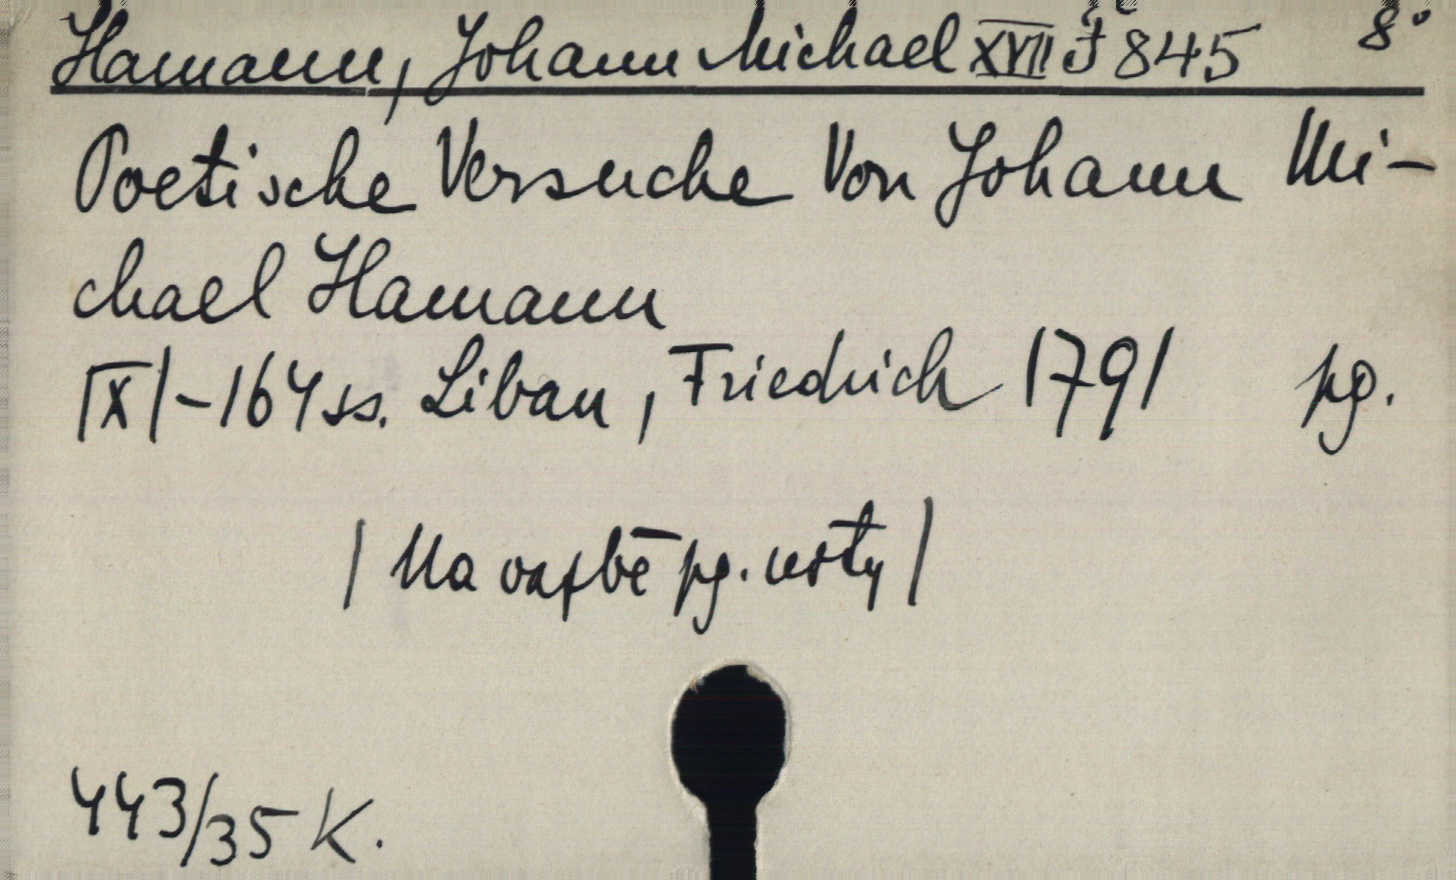 Hamann, Johann Michael XVII J 845 8°
Poetische Versuche Von Johann Mi-
chael Hamann
|X|-164 ss. Libau, Friedrich 1791 pg.
| Na vazbě pg. noty |
443/35 K.